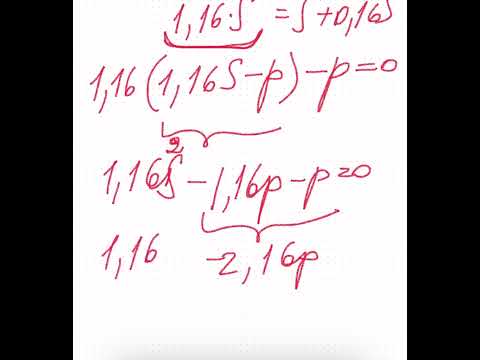 1,16·S = S+0,16S
1,16(1,16S-p)-p=0
1,16²S-1,16p-p=0
1,16 -2,16p